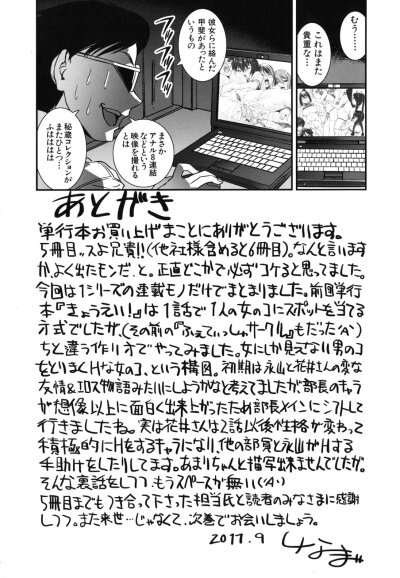 むう…
これはまた
貴重な…
彼女らに絡んだ
甲斐があったと
いうもの
まさか
アナル8連結
などという
映像を撮れる
とは
秘蔵コレクションが
またひとつ…
ふはははは
あとがき
単行本お買い上げまことにありがとうございます。
5冊目ッスよ兄貴!!(他社様含めると6冊目)。なんと言います
か、よく出たモンだ、と。正直どこかで必ずコケると思ってました。
今回は1シリーズの連載モノだけでまとまりました。前回単行
本『きょうえい!』は1話で1人の女のコにスポットを当てる
方式でしたが、(その前の『ふぇてぃっしゅサークル』もだった(^^))
ちと違う作り方でやってみました。女にしか見えない男のコ
をとりまくHな女のコ、という構図。初期は永山と花井さんの変な
友情&エロス物語みたいにしようかなと考えてましたが部長のキャラ
が想像以上に面白く出来上がったため部長メインにシフトして
行きましたね。実は花井さんは2話以後性格が変わって
積極的にHをするキャラになり、他の部員と永山がHする
手助けをしたりしてます。あまりちゃんと描写出来ませんでしたが。
そんな裏話をしつつ、もうスペースが無い(^^)
5冊目までもつき合って下さった担当氏と読者のみなさまに感謝
しつつ。また来世…じゃなくて、次巻でお会いしましょう。
2017.9